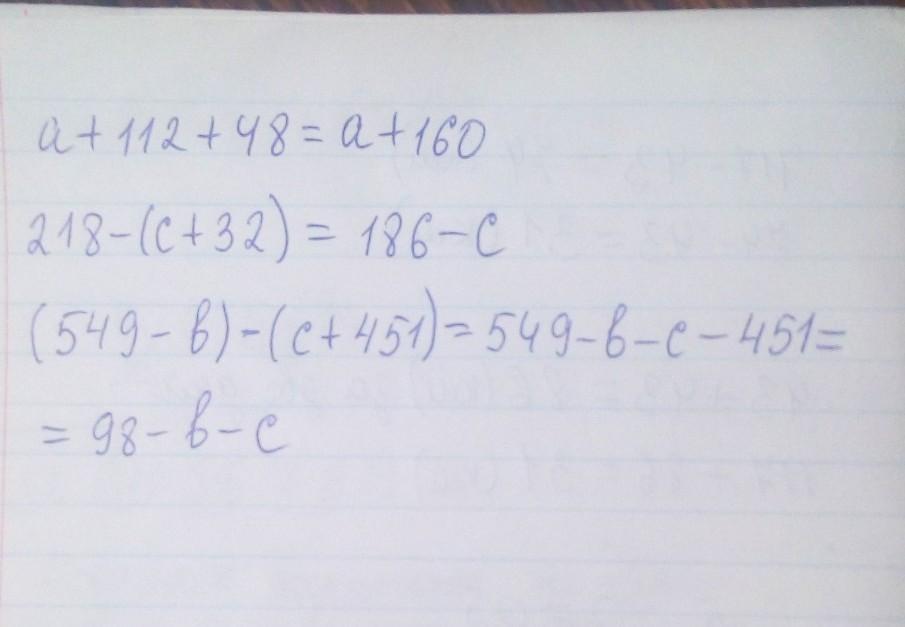 a+112+48=a+160
218-(c+32)=186-c
(549-b)-(c+451)=549-b-c-451=
=98-b-c